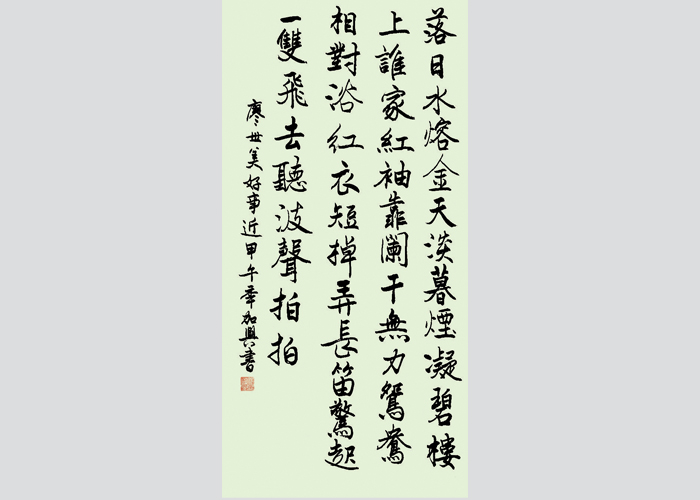 落日水熔金天淡暮煙凝碧樓
上誰家紅袖靠闌干無力鴛鴦
相對浴紅衣短掉弄長笛驚起
一雙飛去聽波聲拍拍
廖世美好事近甲午章加興書